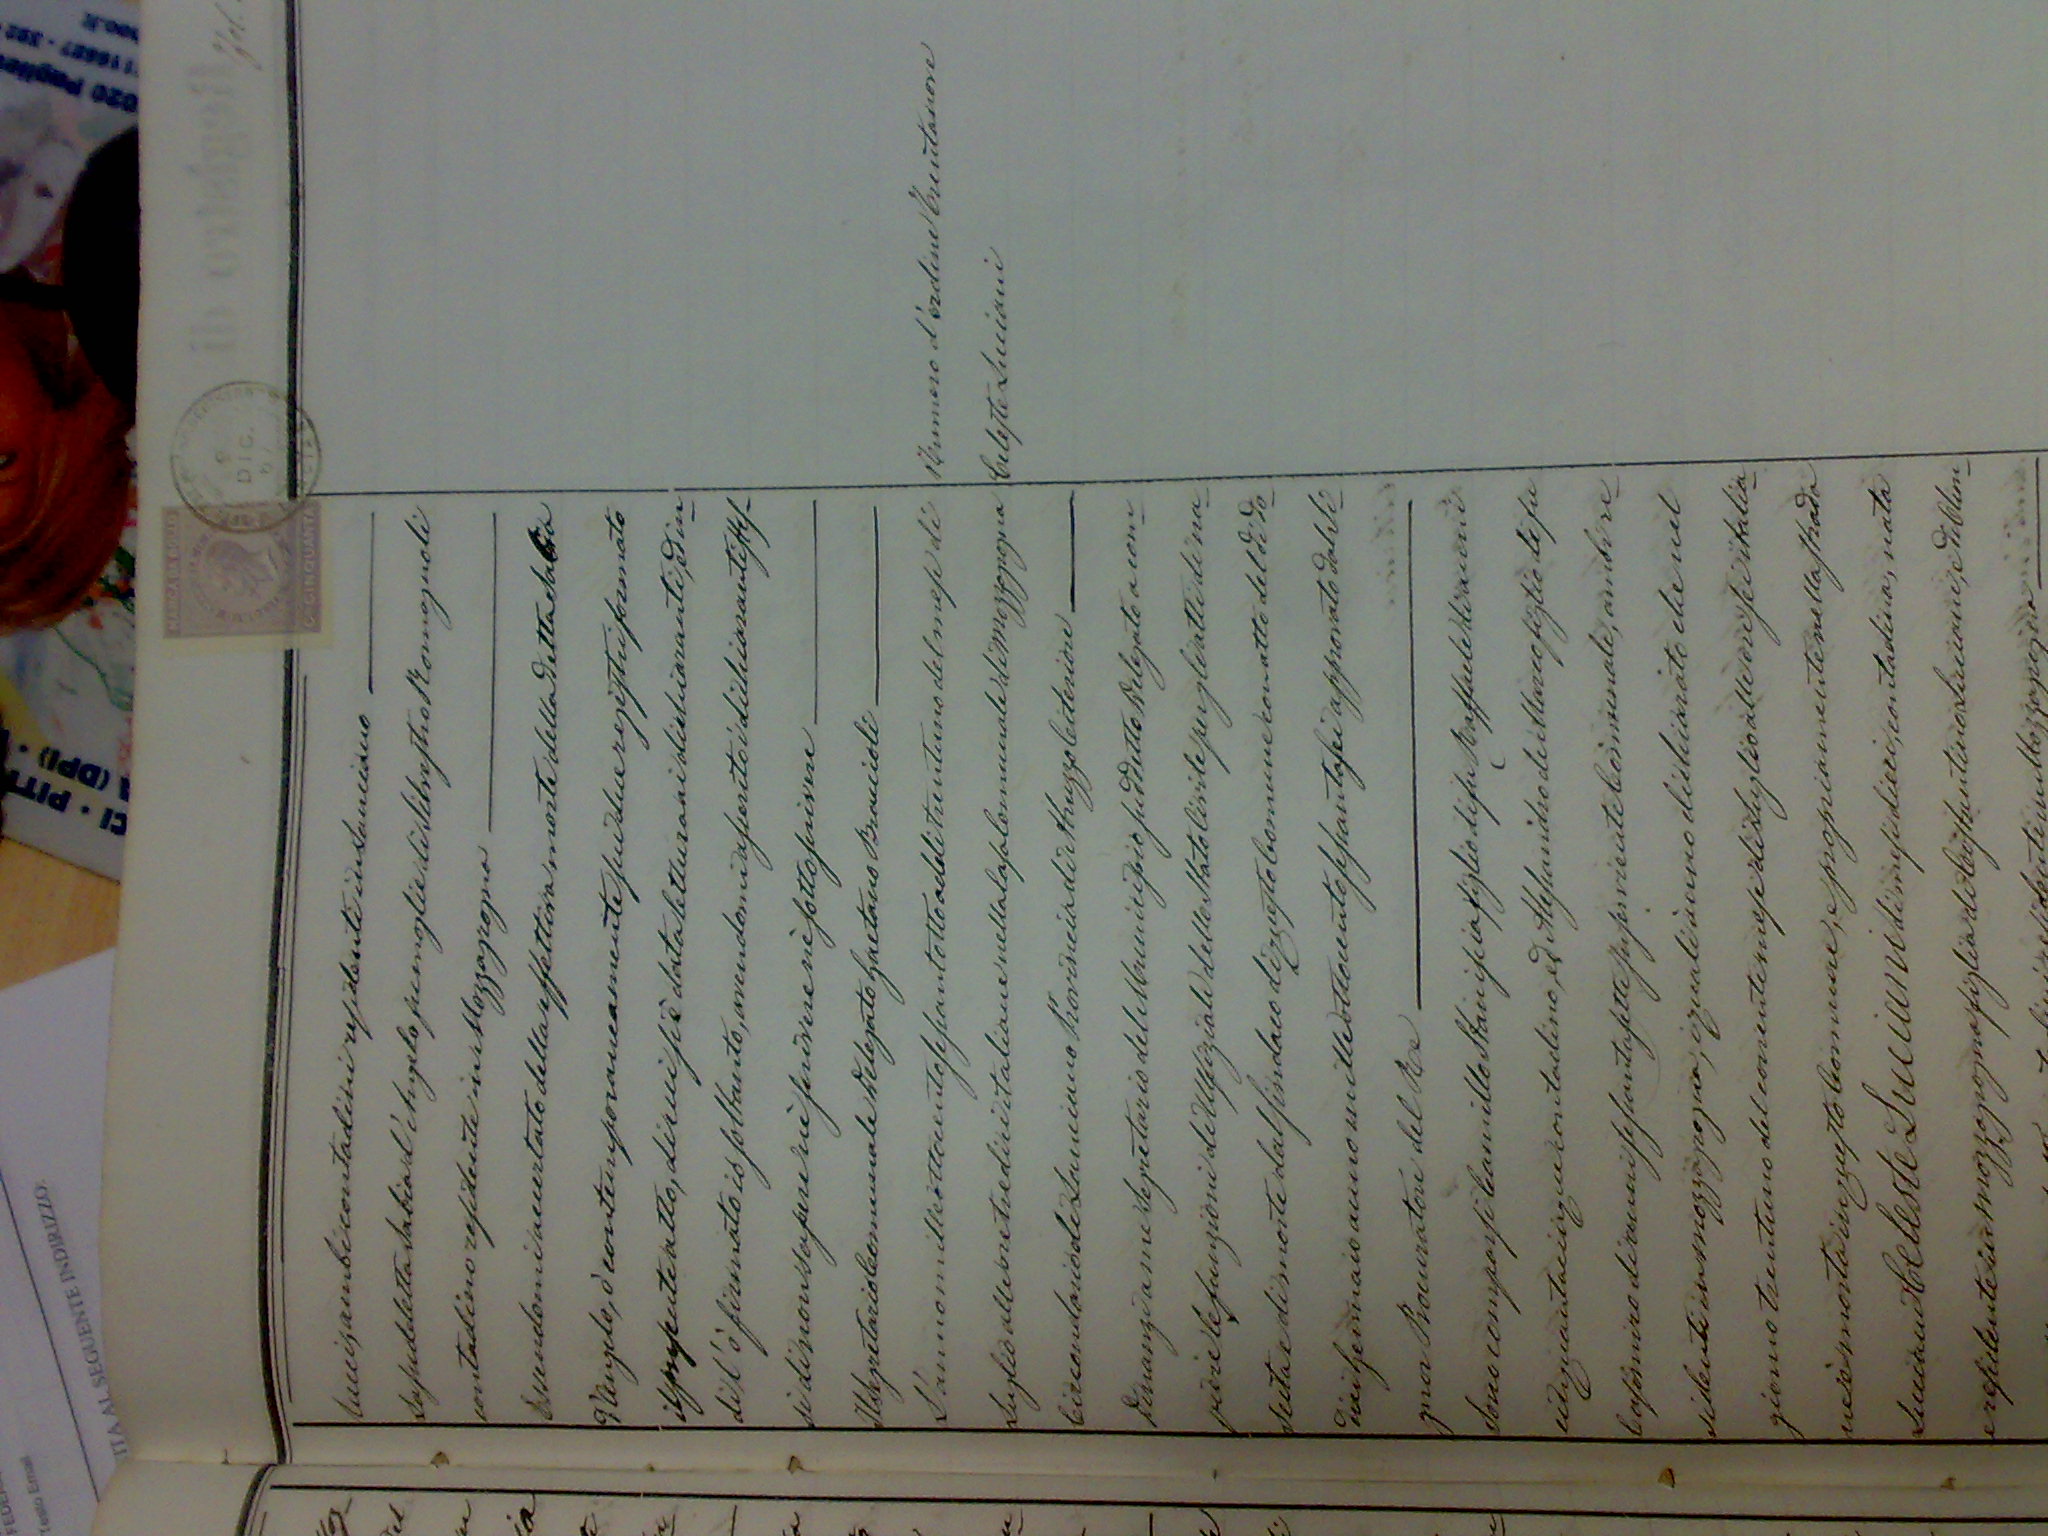 Testo Email
ITA AL SEGUENTE INDIRIZZO:
CI · PITT
(DPI) ·
MARCA DA BOLLO
Cmi CINQUANTA
DIC.
Registro di
Fol.
lucci, ambi contadini residenti in Lanciano
La suddetta Sabia d'Angelo fu moglie di Silvestro Romagnoli
contadino residente in Mozzagrogna
Essendomi accertato della effettiva morte della detta Sabia
D'Angelo, ò contemporaneamente sui due registri formato
il presente atto, di cui si è data lettura ai dichiaranti, ed in-
di l'ò firmato io soltanto, avendomi asserito i dichiaranti stes-
si di non sapere nè scrivere nè sottoscrivere
Il Segretario Comunale Delegato Gaetano Braccioli
L'anno mille ottocento sessantotto addì trentuno del mese di
Numero d'ordine Trentanove
Luglio alle ore tredici italiane nella Casa Comunale di Mozzagrogna
Celeste Luciani
Circondario di Lanciano Provincia di Abruzzo Citeriore
Dinanzi a me Segretario del Municipio suddetto Delegato a com-
piere le funzioni di Uffiziale dello Stato Civile per gli atti di na-
scita e di morte dal Sindaco di questo Comune con atto del dì do-
dici Gennaio anno mille ottocento sessantasei approvato dal Si-
gnor Procuratore del Re
Sono comparsi Camillo Staniscia figlio di fu Raffaele di anni
cinquantacinque contadino, ed Alessandro de Marco figlio di fu
Casimiro di anni sessantasette inserviente Comunale, ambi re-
sidenti in Mozzagrogna, i quali ànno dichiarato che nel
giorno trentuno del corrente mese di Luglio alle ore sei italia-
ne è morta in questo Comune, e propriamente nella strada
Luciani Celeste Luciani di mesi dieci, contadina, nata
e residente in Mozzagrogna figlia di Costantino Luciani, e di Clem-
residenti in Mozzagrogna